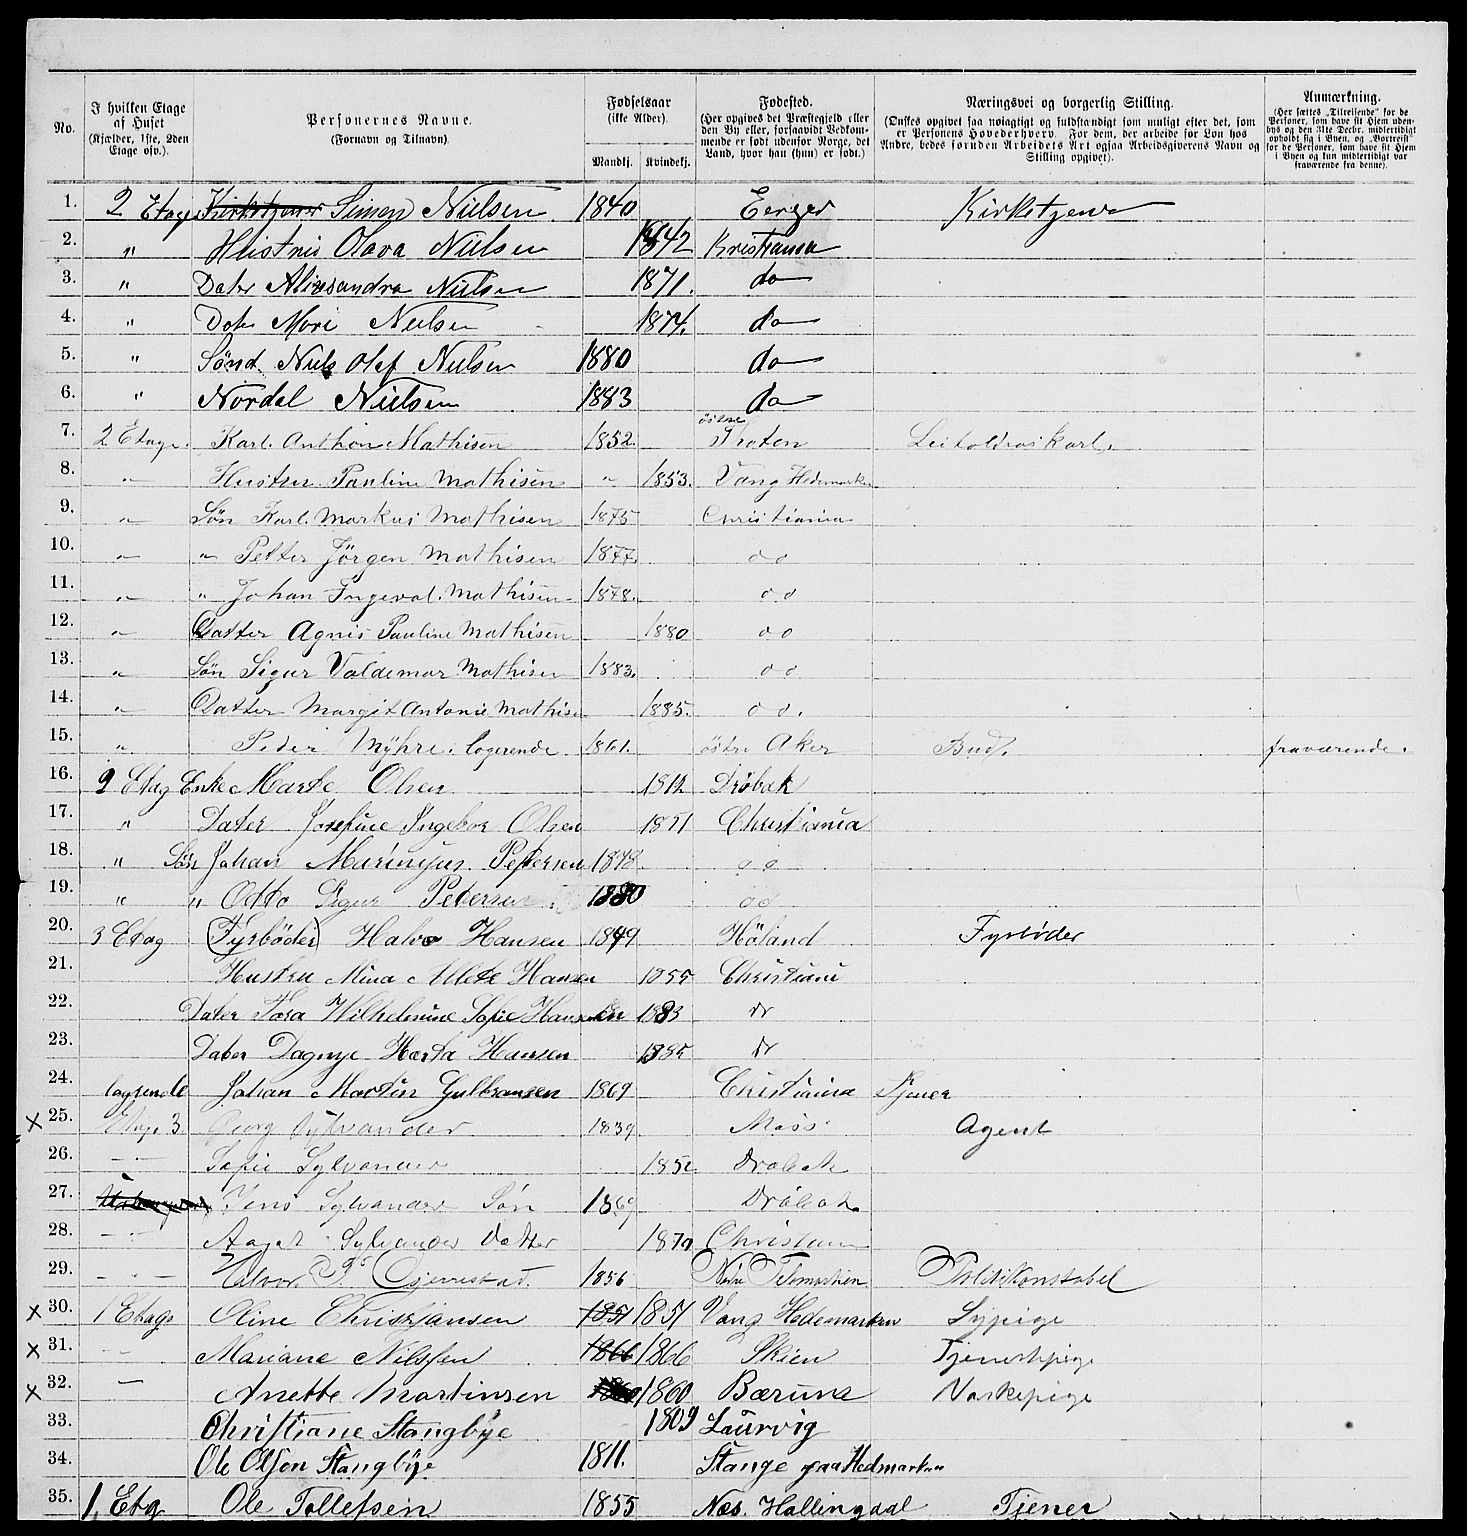 No. I hvilken Etage af Huset (Kjælder, 1ste, 2den Etage osv.). Personernes Navne. (Fornavn og Tilnavn). Fødselsaar (ikke Alder). Mandkj. Kvindekj. Fødested. (Her opgives det Præstegjeld eller den By eller, forsaavidt Vedkommende er født udenfor Norge, det Land, hvor han (hun) er født.) Næringsvei og borgerlig Stilling. (Ønskes opgivet saa nøiagtigt og fuldstændigt som muligt efter det, som er Personens Hovederhverv. For dem, der arbeide for Løn hos Andre, bedes foruden Arbeidets Art ogsaa Arbeidsgiverens Navn og Stilling opgivet). Anmærkning. (Her sættes „Tilreisende“ for de Personer, som have sit Hjem udenbys og den 31te Decbr. midlertidigt opholdt sig i Byen, og „Bortreist“ for de Personer, som have sit Hjem i Byen og kun midlertidigt var fraværende fra denne).
1. 2 Etage Kirketjener Simon Nielsen 1840 Kirketjener
2. " Olava Nielsen 1842 Kristiania
3. " Dater Nielsen 1871. do
4. " Nielsen 1874. do
5. " Sønd. Niels Olef Nielsen 1880 do
6. " Nordal Nielsen 1883 do
7. 2 Etage. Karl. Anthon Mathisen 1852. østre Thoten
8. " Hustru Pauline Mathisen " 1853. Vang Hedemarken
9. " Søn Karl. Markus Mathisen 1875 Christiania
10. " " Petter Jörgen Mathisen 1877. do
11. " " Johan Ingeval. Mathisen 1878. do
12. " Datter Agnis Pauline Mathisen 1880 do
13. " Søn Sigur Valdemar Mathisen 1883. do
14. " Datter Margit Antonie Mathisen 1885. do.
15. " Peder Myhre. logerende 1861. östre Aker Bud. fraværende.
16. 2 Etag Enke Marte Olsen 1812 Drøbak
17. " Dater Josefine Ingebor Olsen 1851 Christiania
18. " Søn Johan Petersen 1848 do
19. " " Otto Sigur Petersen 1880 do
20. 3 Etag (Fyrbøder) Halvo Hansen 1849 Höland Fyrbøder
21. Hustru Mina Hansen 1855 Christiani
22. Dater Tora Wilhelmine Sofie Hansen 1883 dr
23. Dater Dagnye Harta Hansen 1885 dr
24. logrende Johan Martin Gulbransen 1869 Christiania Tjener
x 25. Etage 3. Georg Sylvander 1839. Moss Agent
26. " Sofie Sylvander Drøbak
27. Jens Sylvander Søn 1869 Drøbak
28. " Sylvander Datter 1870 Christiania
29. " Halvor 1856 Nedre Telemarken Politikonstabel
x 30. 1 Etage Oline Christiansen 1851 1851 Vang Hedemarken Sypige
x 31. " Mariane Nilssen 1866 1866 Skien Tjenestepige
x 32. " Anette Martinsen 1860 1860 Bærum Vaskepige
33. Christiane Stangbye 1809 Laurvig
34. Ole Olson Stangbye 1811. Stange paa Hedmarken
35. 1. Etg Ole Tollefsen 1855 Næs. Hallingdal Tjener